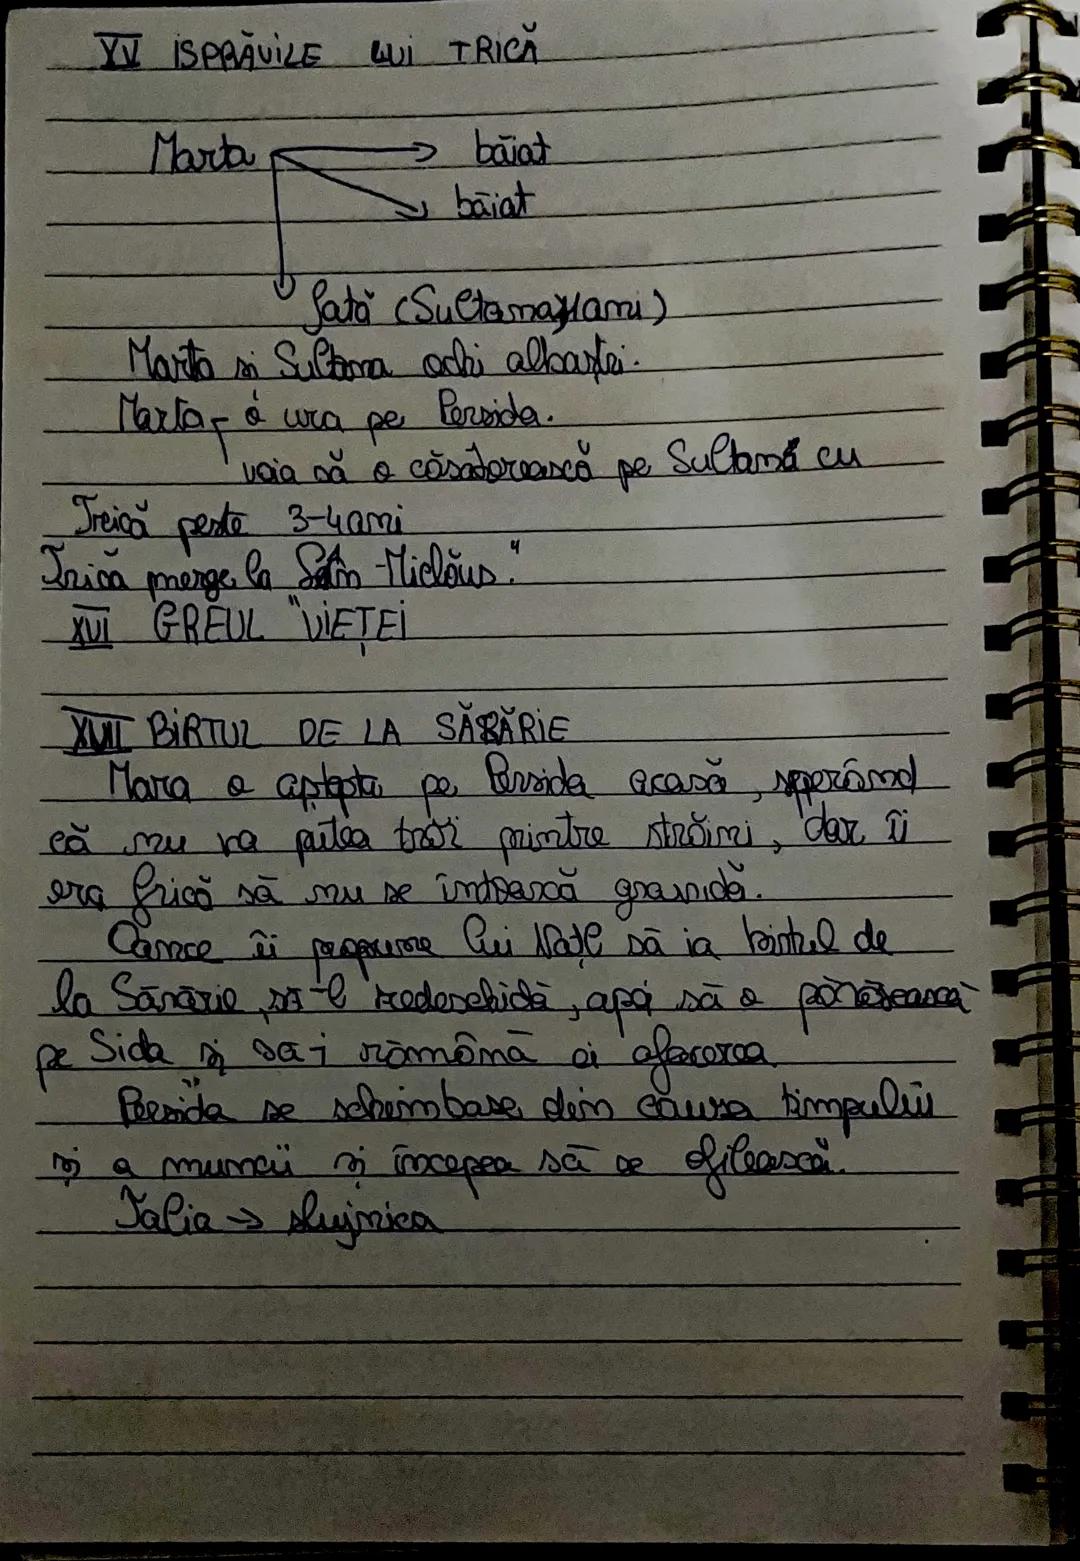 XV ISPRĂVILE LUI TRICĂ
Marta → băiat
băiat
fată (Sultana
Marta și Sultana ochi albaștri.
Marta - o ura pe Persida.
voia să o căsătorească pe Sultana cu
Treică peste 3-4 ani
Trică merge la Sân-Miclăuș."
XVI GREUL "VIEȚEI
XVII BIRTUL DE LA SĂRĂRIE
Mara o aștepta pe Persida acasă, sperând
că nu va putea trăi printre străini, dar îi
era frică să nu se întoarcă gravidă.
îi propune lui Națl să ia birtul de
la Sărărie, să-l redeschidă, apoi să o părăsească
pe Sida și să-i rămână ei afacerea
Persida se schimbase din cauza timpului
și a muncii și începea să se ofilească.
Talia → slujnica